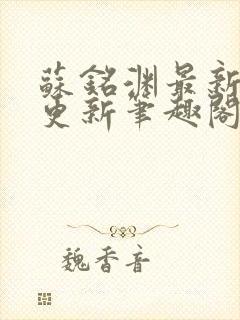 蘇銘淵最新
更新筆趣閣
魏香音